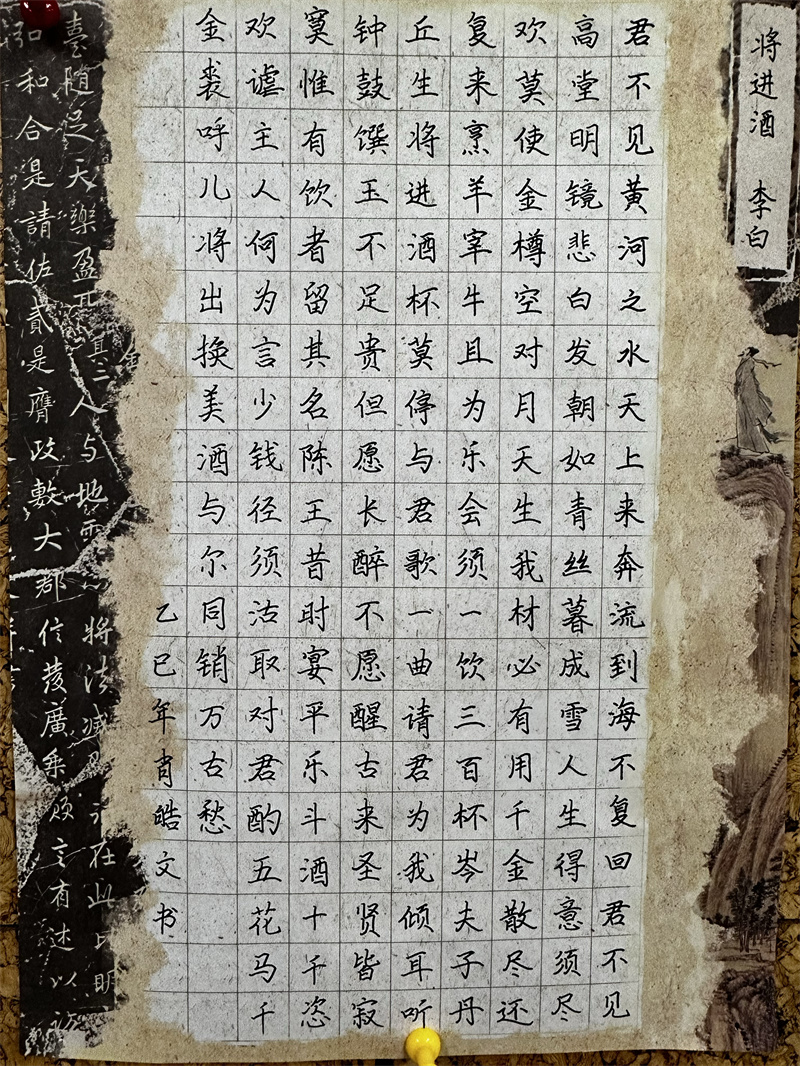 将进酒 李白
君不见黄河之水天上来奔流到海不复回君不见
高堂明镜悲白发朝如青丝暮成雪人生得意须尽
欢莫使金樽空对月天生我材必有用千金散尽还
复来烹羊宰牛且为乐会须一饮三百杯岑夫子丹
丘生将进酒杯莫停与君歌一曲请君为我倾耳听
钟鼓馔玉不足贵但愿长醉不愿醒古来圣贤皆寂
寞惟有饮者留其名陈王昔时宴平乐斗酒十千恣
欢谑主人何为言少钱径须沽取对君酌五花马千
金裘呼儿将出换美酒与尔同销万古愁
乙巳年肖皓文书
臺随足天樂盈 人与地 将法 在此 明
和合是請佐貳是膺政數大都信茂廣乘 言有述以